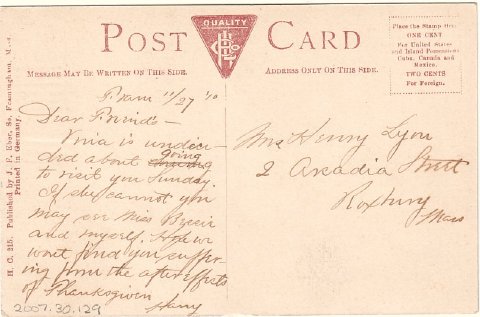 POST CARD
QUALITY
MESSAGE MAY BE WRITTEN ON THIS SIDE.
ADDRESS ONLY ON THIS SIDE.
Place the Stamp here
ONE CENT
For United States
and Island Possessions
Cuba, Canada and
Mexico.
TWO CENTS
For Foreign.
H. C. 215. Published by J. F. Eber, So. Framingham, Mass.
Printed in Germany.
11/27 '10
Dear Friends-
is undeci-
ded about going
to visit you Sunday.
If she cannot you
may see Miss
and myself. Hope we
wont find you suffer-
ing from the after effects
of Thanksgiven
Harry
Mrs Henry Lyon
2 Arcadia Street
Roxbury
Mass
2007.30.129